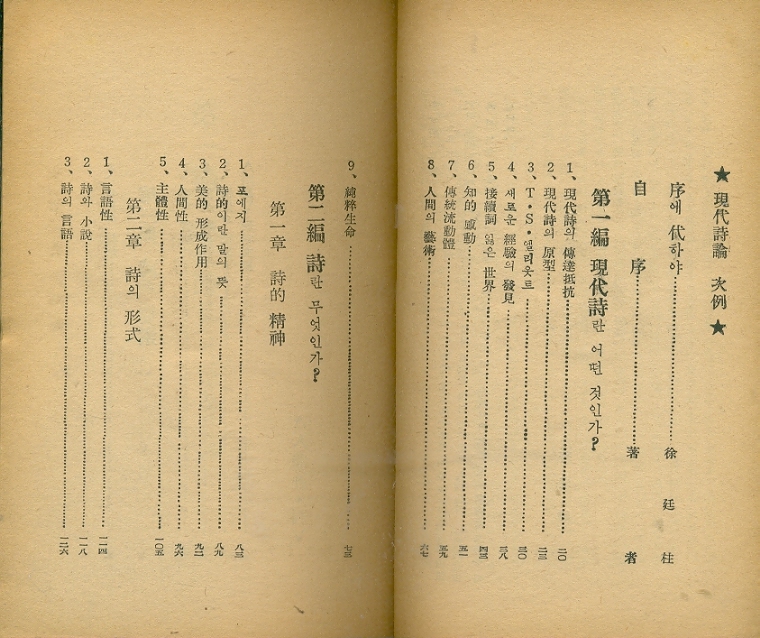 ★ 現代詩論 次例 ★
序에 代하야 徐廷柱
自序 著者
第一編 現代詩란 어떤 것인가?
1、現代詩의 傳達抵抗 二〇
2、現代詩의 原型 二三
3、T・S・엘리옷트 三〇
4、새로운 經驗의 發見 三八
5、接續詞 잃은 世界 四三
6、知的 感動 五一
7、傳統流動體 五九
8、人間의 藝術 六七
9、純粹生命 七三
第二編 詩란 무엇인가?
第一章 詩的 精神
1、포에지 八三
2、詩的이란 말의 뜻 八九
3、美的 形成作用 九二
4、人間性 九六
5、主體性 一〇五
第二章 詩의 形式
1、言語性 一一四
2、詩와 小說 一一八
3、詩의 言語 一二六